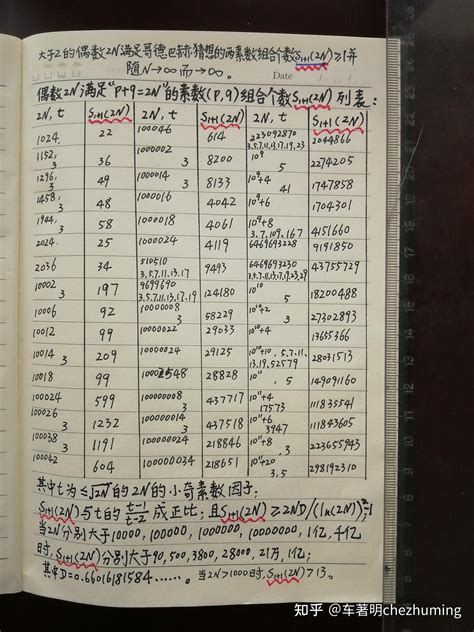 大于2的偶数2N满足哥德巴赫猜想的两素数组合个数S₁₊₁(2N)≥1并
随N→∞而→∞。
Date
偶数2N满足"P+9=2N"的素数(P,9)组合个数S₁₊₁(2N)列表:
2N, t S₁₊₁(2N) 2N, t S₁₊₁(2N) 2N, t S₁₊₁(2N)
1024, 22 1000046 614 223092870 3.5.7.11.13.17.19.23 2044866
1152, 3 36 1000002 3 8200 10⁹ 5 2274205
1296, 3 49 1000014 3 8133 10⁹+4 41 1747858
1458, 3 48 1000016 4042 10⁹+6 1704301
1944, 3 58 1000018 4061 10⁹+8 3.7.109.167 4151660
2024, 25 1000024 4119 6469693228 9191850
2036 34 510510 3.5.7.11.13.17 9493 6469693230 3.5.7.11.13.17.19.23.29 43755729
10002 3 197 9699690 3.5.7.11.13.17.19 124180 10¹⁰ 5 18200488
10006 92 10000008 3 58229 10¹⁰+2 3 27302893
10012 99 10000022 29033 10¹⁰+4 13655366
10014 3 209 10000024 29125 10¹⁰+10, 5.7.11.13.19.52579 28031513
10018 99 10002548 28828 10¹¹ 5 149091160
100024 599 100000008 3 437717 10¹¹+4 17573 111835541
100026 3 1232 100000014 3 437518 10¹¹+6 3947 111843605
100038 3 1191 100000024 218846 10¹¹+8 3 223655943
100042 604 100000034 218651 10¹¹+20 3.5 298192310
其中t为≤√2N的2N的小奇素数因子;
S₁₊₁(2N)与t的(t-1)/(t-2)成正比;且S₁₊₁(2N)≥2ND/(ln(2N))²-1
当2N分别大于10000,100000,1000000,10000000,1亿,千亿
时,S₁₊₁(2N)分别大于90,500,3800,28000,21万,1亿;
其中D=0.66016181584……。当2N>1000时,S₁₊₁(2N)>13。
知乎 @车著明chezhuming